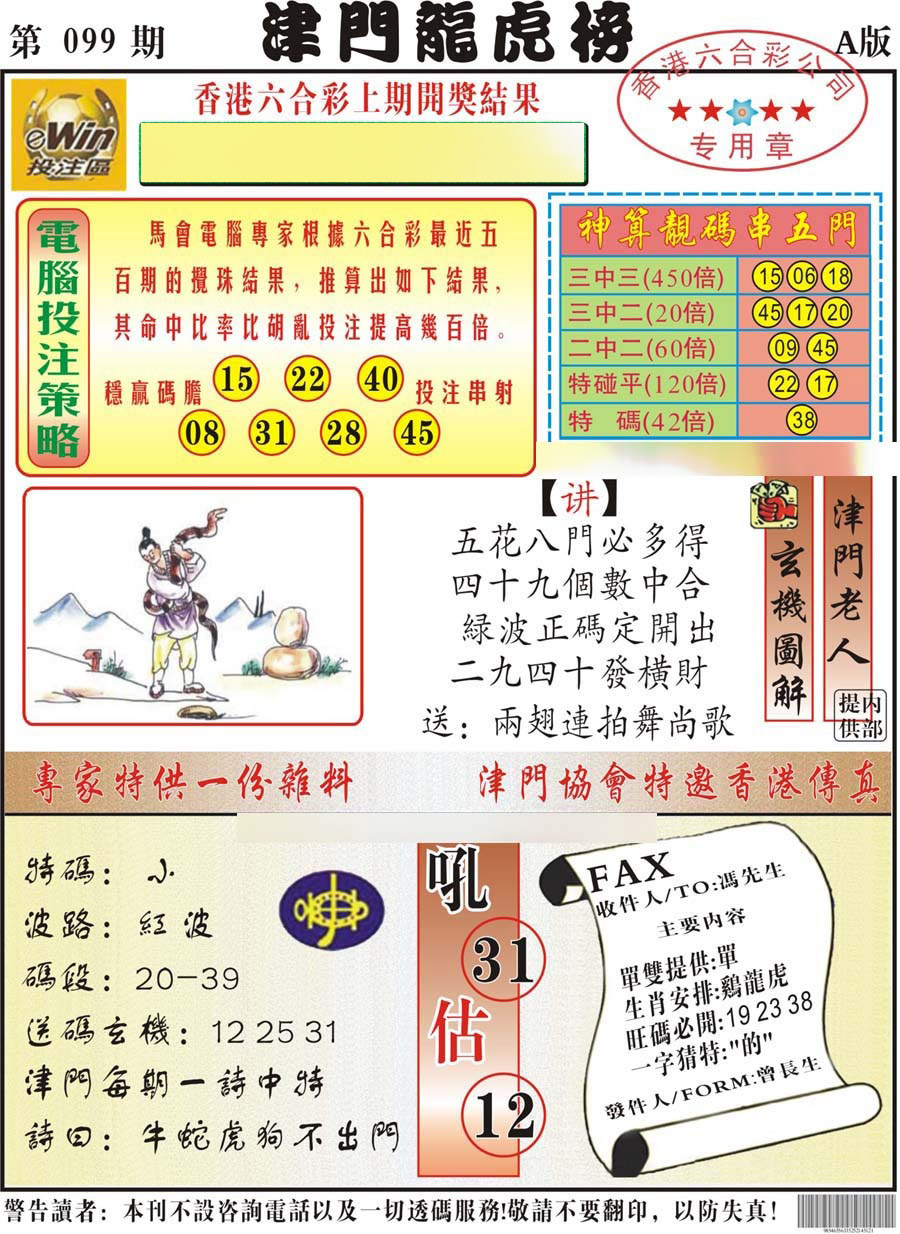 第 099 期
津門龍虎榜
A版
香港六合彩上期開獎結果
香港六合彩公司
专用章
eWin
投注區
電腦投注策略
馬會電腦專家根據六合彩最近五
百期的攪珠結果，推算出如下結果，
其命中比率比胡亂投注提高幾百倍。
穩贏碼膽 15 22 40 投注串射
08 31 28 45
神算靚碼串五門
三中三(450倍) 15 06 18
三中二(20倍) 45 17 20
二中二(60倍) 09 45
特碰平(120倍) 22 17
特 碼(42倍) 38
【讲】
五花八門必多得
四十九個數中合
綠波正碼定開出
二九四十發橫財
送：兩翅連拍舞尚歌
玄機圖解
津門老人
内部提供
專家特供一份雜料
津門協會特邀香港傳真
特碼：小
波路：紅波
碼段：20-39
送碼玄機：12 25 31
津門每期一詩中特
詩曰：牛蛇虎狗不出門
吼
31
估
12
FAX
收件人/TO:馮先生
主要内容
單雙提供:單
生肖安排:鷄龍虎
旺碼必開:19 23 38
一字猜特:"的"
發件人/FORM:曾長生
警告讀者：本刊不設咨詢電話以及一切透碼服務!敬請不要翻印，以防失真！